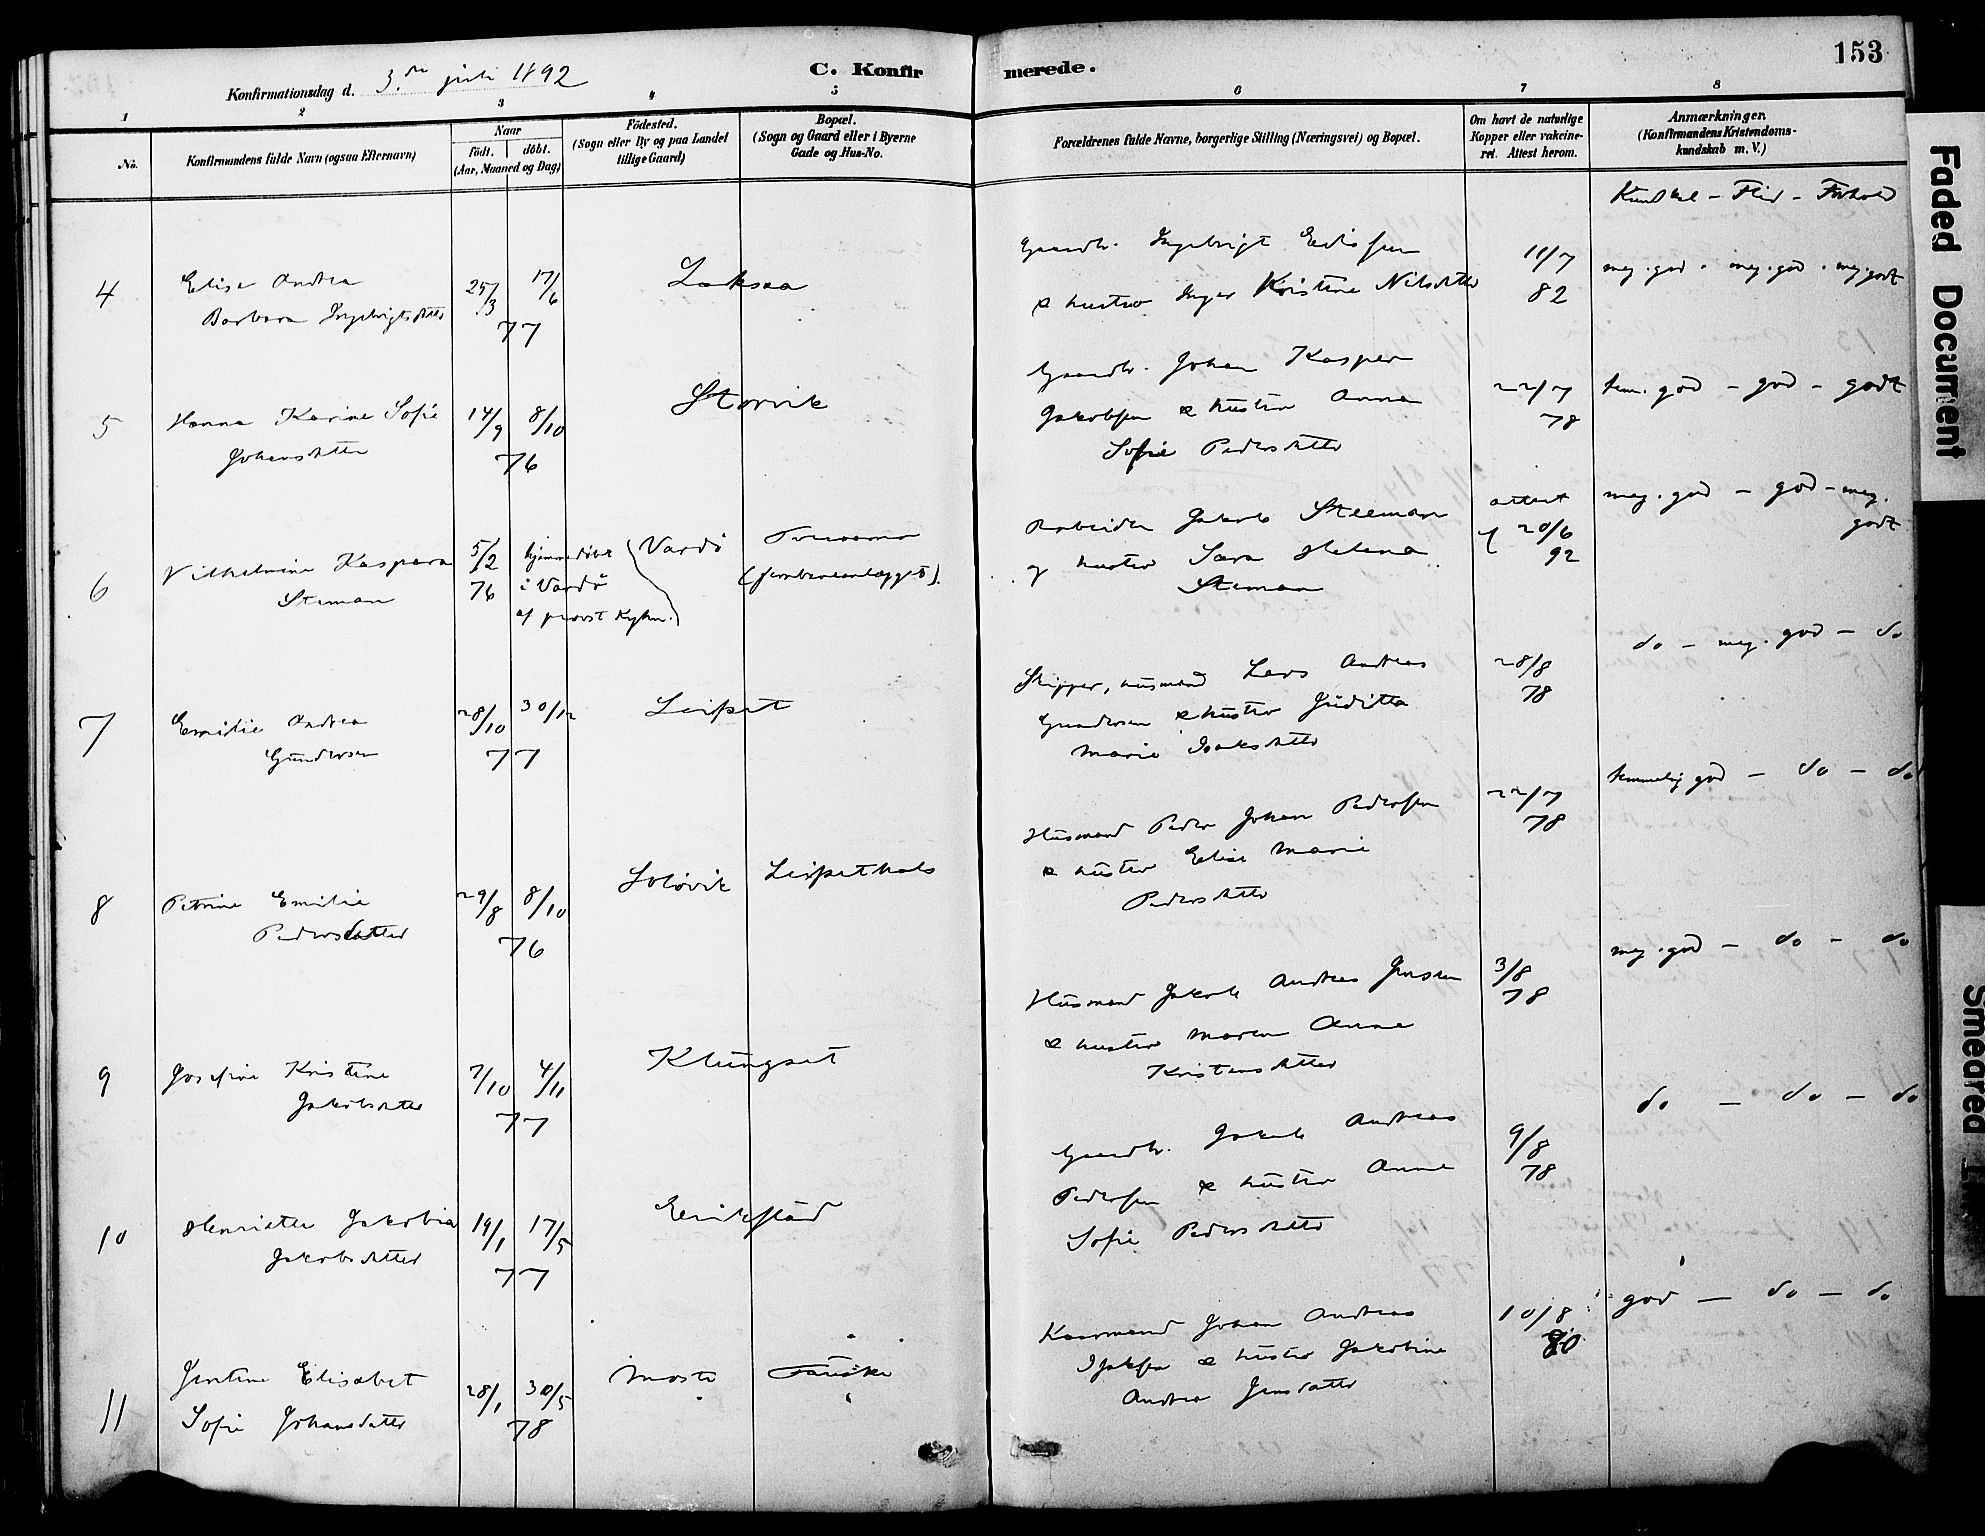 153
C. Konfirmerede.
Konfirmationsdag d. 3. juli 1892
1 2 3 4 5 6 7 8
No.
Konfirmandens fulde Navn (ogsaa Efternavn)
Naar
Født. døbt.
(Aar, Maaned og Dag)
Fødested.
(Sogn eller By og paa Landet
tillige Gaard)
Bopæl.
(Sogn og Gaard eller i Byerne
Gade og Hus-No.
Forældrenes fulde Navne, borgerlige Stilling (Næringsvei) og Bopæl.
Om havt de naturlige
Kopper eller vakcine-
ret. Attest herom.
Anmærkninger.
(Konfirmandens Kristendoms-
kundskab m. V.)
Kundskab - Flid - Forhold
4 Elise Andrea
Barbara Ingebrigtsdatter
25/3 17/6
77
Laksaa
Gaardbr. Ingebrigt
& hustru Inger Kristine Nilsdatter
11/7
82
meg. god - meg. god - meg. godt
5 Hanna Karine Sofie
Johansdatter
14/9 8/10
76
Storvik
Gaardbr. Johan Kasper
Jakobsen & hustru Anna
Sofie Pedersdatter
22/7
78
tem. god - god - godt
6 Vilhelmine Kaspara
Steman
5/2
76
hjemmedøbt
i Vardö
af provst
Vardö
(jernbaneanlægget).
Arbeider Jakob Steeman
og hustru Sara Helena
Steman
attest
20/6
92
meg. god - god - meg.
godt
7 Emilie Andrea
Gundersen
28/10 30/12
77
Leifset
Skipper, husmand Lars Andreas
Gundersen & hustru Juditta
Marie Isaksdatter
28/8
78
do - meg. god - do
8 Petrine Emilie
Pedersdatter
29/8 8/10
76
Leifsethals
Husmand Peder Johan Pedersen
& hustru Elise Marie
Pedersdatter
22/7
78
temmelig god - do - do
9 Josefine Kristine
Jakobsdatter
7/10 4/11
77
Klungset
Husmand Jakob Andreas Jensen
& hustru Maren Anna
Kristensdatter
3/8
78
meg. god - do - do
10 Henriette Jakobia
Jakobsdatter
19/1 17/5
77
Erikstad
Gaardbr. Jakob Andreas
Pedersen & hustru Anna
Sofie Pedersdatter
9/8
78
do - do - do
11 Jentine Elisabet
Sofie Johansdatter
28/1 30/5
78
Moste
Fauske
Kaarmand Johan Andreas
Isaksen & hustru Jakobine
Andrea Jensdatter
10/8
80
god - do - do
Faded Document
Smeared